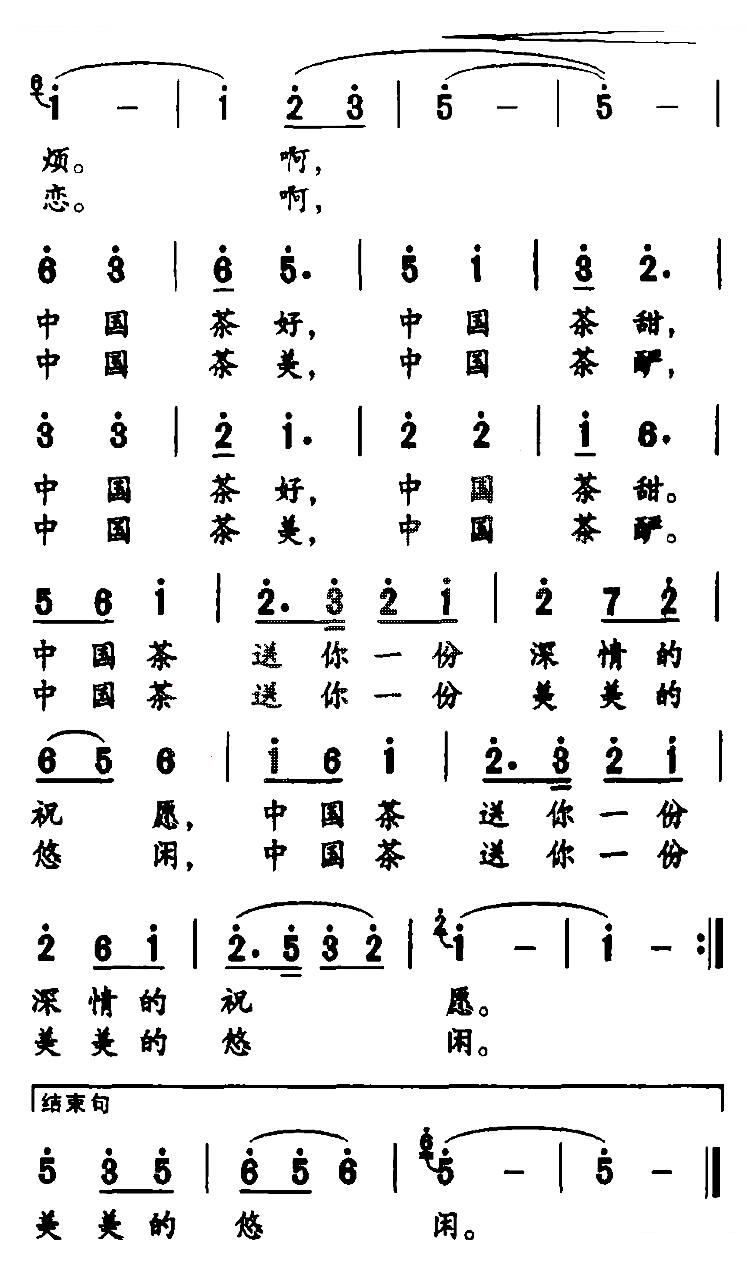 6 1 - | 1 2 3 | 5 - | 5 - |
烦。 啊,
恋。 啊,
6 3 | 6 5. | 5 1 | 3 2. |
中 国 茶 好, 中 国 茶 甜,
中 国 茶 美, 中 国 茶 酽,
3 3 | 2 1. | 2 2 | 1 6. |
中 国 茶 好, 中 国 茶 甜。
中 国 茶 美, 中 国 茶 酽。
5 6 1 | 2. 3 2 1 | 2 7 2 |
中 国 茶 送 你 一 份 深 情 的
中 国 茶 送 你 一 份 美 美 的
6 5 6 | 1 6 1 | 2. 3 2 1 |
祝 愿, 中 国 茶 送 你 一 份
悠 闲, 中 国 茶 送 你 一 份
2 6 1 | 2. 5 3 2 | 2 1 - | 1 - :||
深 情 的 祝 愿。
美 美 的 悠 闲。
结束句
5 3 5 | 6 5 6 | 6 5 - | 5 - ||
美 美 的 悠 闲。